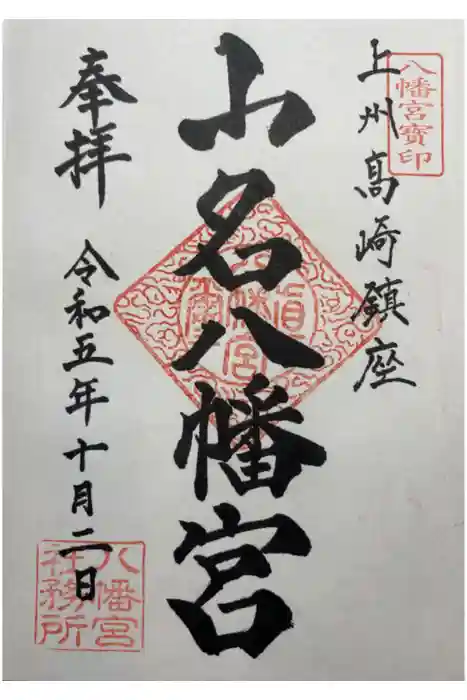 上州高崎鎮座
八幡宮寶印
山名八幡宮
奉拝
令和五年十月二日
八幡宮
社務所